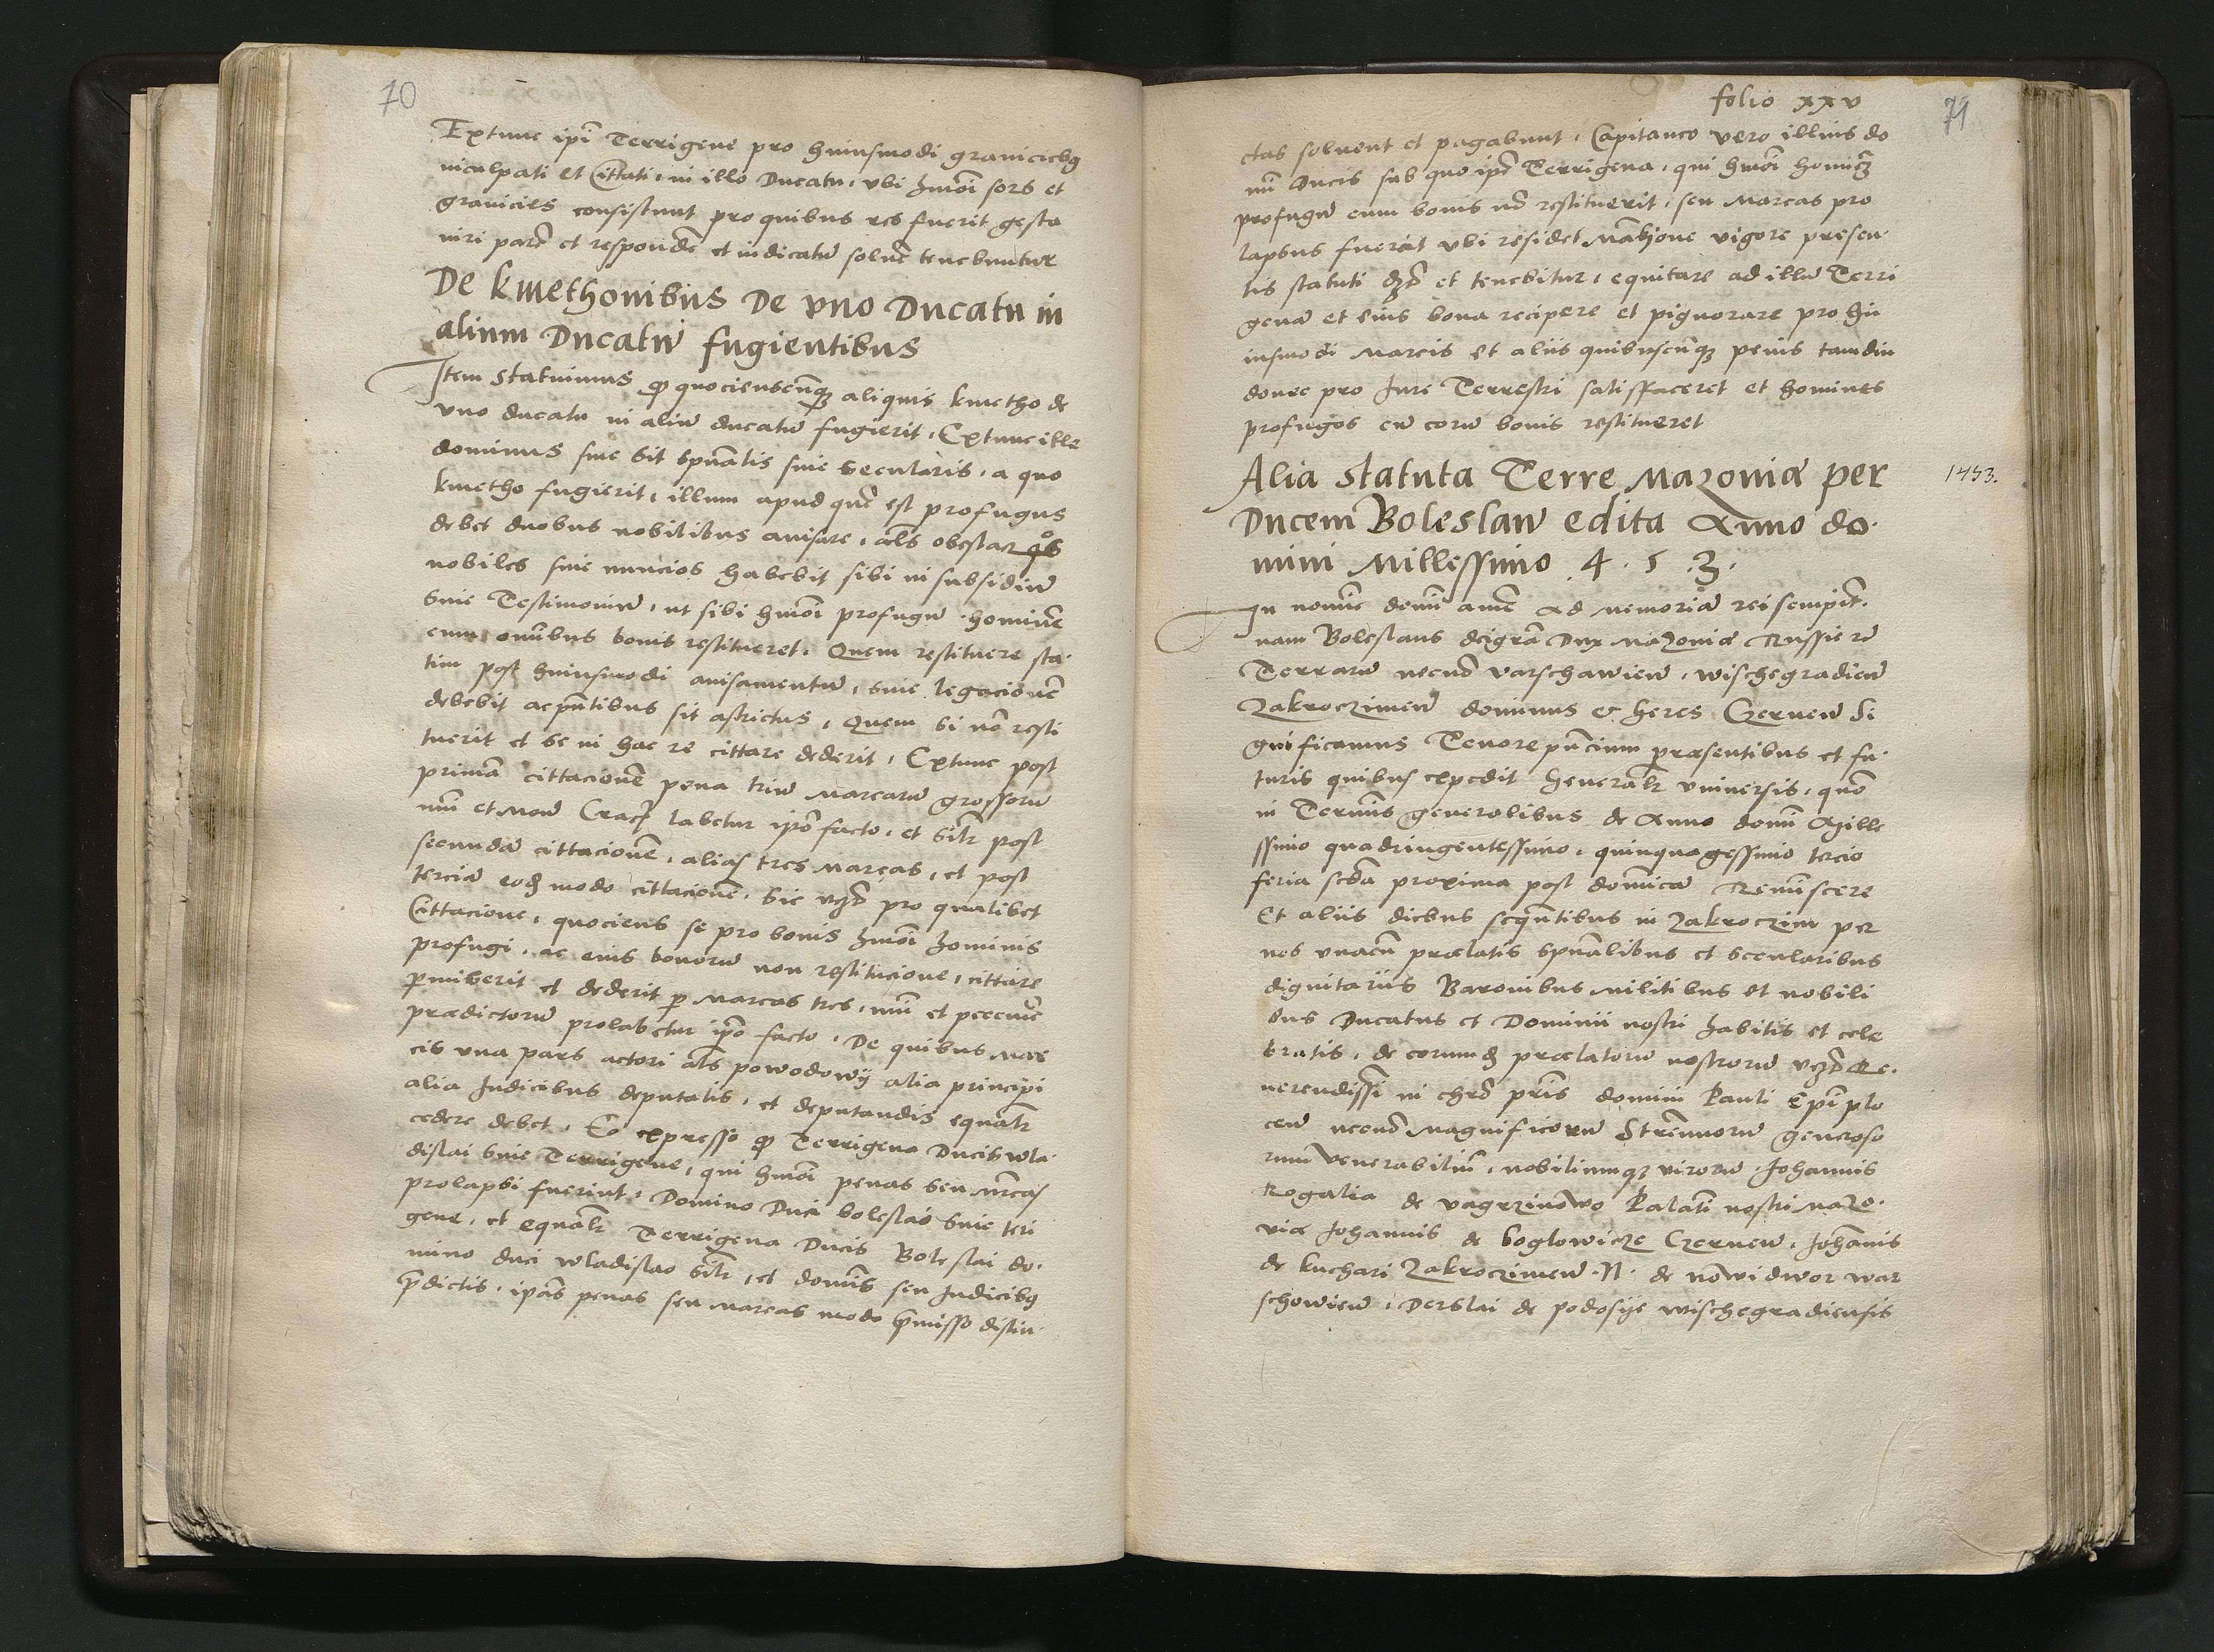 70
Extunc ipi Terrigene pro huiusmodi graniciebg
inculpati et Cittati, in illo Ducatu, vbi hmoi sors et
granicies consistunt pro quibus res fuerit gesta
iuri pare et responde et iudicatu solue tenebuntur
De kmethonibus De vno Ducatu in
alium Ducatu fugientibus
Item statuimus qp quocienscunqz aliquis kmetho de
vno ducatu in aliu ducatu fugierit, Extunc ille
dominus siue sit spualis siue secularis, a quo
kmetho fugierit, illum apud que est profugus
debet duobus nobilibus auisare, als obeslacz qos
nobiles siue nuncios habebit sibi in subsidiu
siue Testimoniu, ut sibi hmoi profugu homine
cum omibus bonis restitueret. Quem restituere sta-
tim post huiusmodi auisamentu, siue legacione
debebit ac pntibus sit astrictus, Quem si no resti
tuerit et se in hac re cittare dederit, Extunc post
prima cittacione pena triu marcaru grossoru
nui et mon Crac labetur ipo facto, et silr post
secunda cittacione, alias tres marcas, et post
tercia eod modo cittacione, sic vzd pro qualibet
Cittacione, quociens se pro bonis hmoi hominis
profugi, ac eius bonoru non restitucione, cittare
pmiserit et dederit p marcas tres, nui et pecunie
praedictoru prolabetur ipo facto, De quibus mar
cis una pars actori als powodowij alia principi
alia Iudicibus deputatis, et deputandis equalr
cedere debet, Eo expresso qp Terrigena Ducis wla-
dislai siue Terrigene, qui hmoi penas seu mrcas
prolapsi fuerint, Domino Duci boleslao siue teri
gene, et equalr Terrigena Ducis Boleslai do-
mino duci wladislao silr, et domis seu Iudicibg
pdictis, ipas penas seu marcas modo pmisso distin-
folio xxv
71
ctas soluent et pagabunt, Capitaneo vero illius do
mi Ducis sub quo ipe Terrigena, qui hmoi hominem
profugu cum bonis no restituerit, seu marcas pro
lapsus fuerit vbi residet mansione vigore presen-
tis statuti dzd et tenebitur, equitare ad illu Terri
gena et eius bona recipere et pignorare pro hu
iusmodi marcis et aliis quibuscunqz penis tamdiu
donec pro Iure Terrestri satisffaceret et homines
profugos cu eoru bonis restitueret
Alia statuta Terre Mazoniae per 1453.
Ducem Boleslau edita Anno do-
mini Millessimo .4.5.3.
In nomie domi ame ad memoria rei sempit-
nam Boleslaus deigra Dux Mazoniae Russie re
Terraru necno varschawien, wischegradien
Zakroczimen dominus & heres Czernen Si
gnificamus Tenore pncium praesentibus et fu-
turis quibus expedit generalr vniuersis, quo
in Terminis generalibus de Anno domi Mille
ssimo quadringentessimo, quinquagessimo tercio
feria scda proxima post domica Reminscere
Et aliis diebus sequntibus in Zakroczim per
nos vnacu praelatis spualibus et secularibus
dignitariis Baronibus militibus et nobili
bus Ducatus et Dominii nostri habitis et cele
bratis, de eorumd praelatoru nostroru vzd Re-
uerendissi in chro pris domini Pauli Epi plo
cen necno magnificoru Strennuoru generoso
rum venerabiliu, nobiliumqz viroru Iohannis
Rogalia de vagrzinowo Palati nostri mazo-
viae Iohannis de boglowicze Czernen, Iohanis
de kuchari Zakroczimen .N. de nowidwor war
schowien, Derslai de podosije wischegradiensis